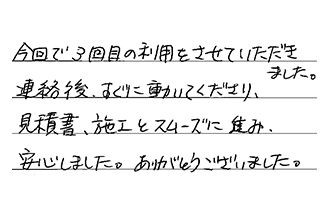 今回で3回目の利用をさせていただき
ました。
連絡後、すぐに動いてくださり、
見積書、施工とスムーズに進み、
安心しました。ありがとうございました。